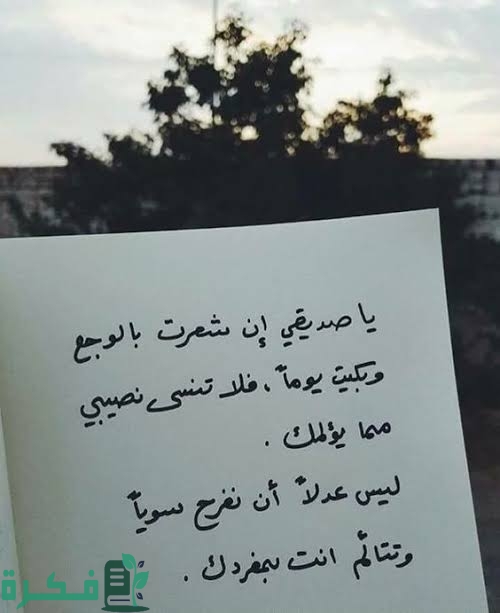 يا صديقي إن شعرت بالوجع
وبكيت يوماً، فلا تنسى نصيبي
مما يؤلمك .
ليس عدلاً أن نفرح سوياً
وتتألم انت بمفردك .
فكرة